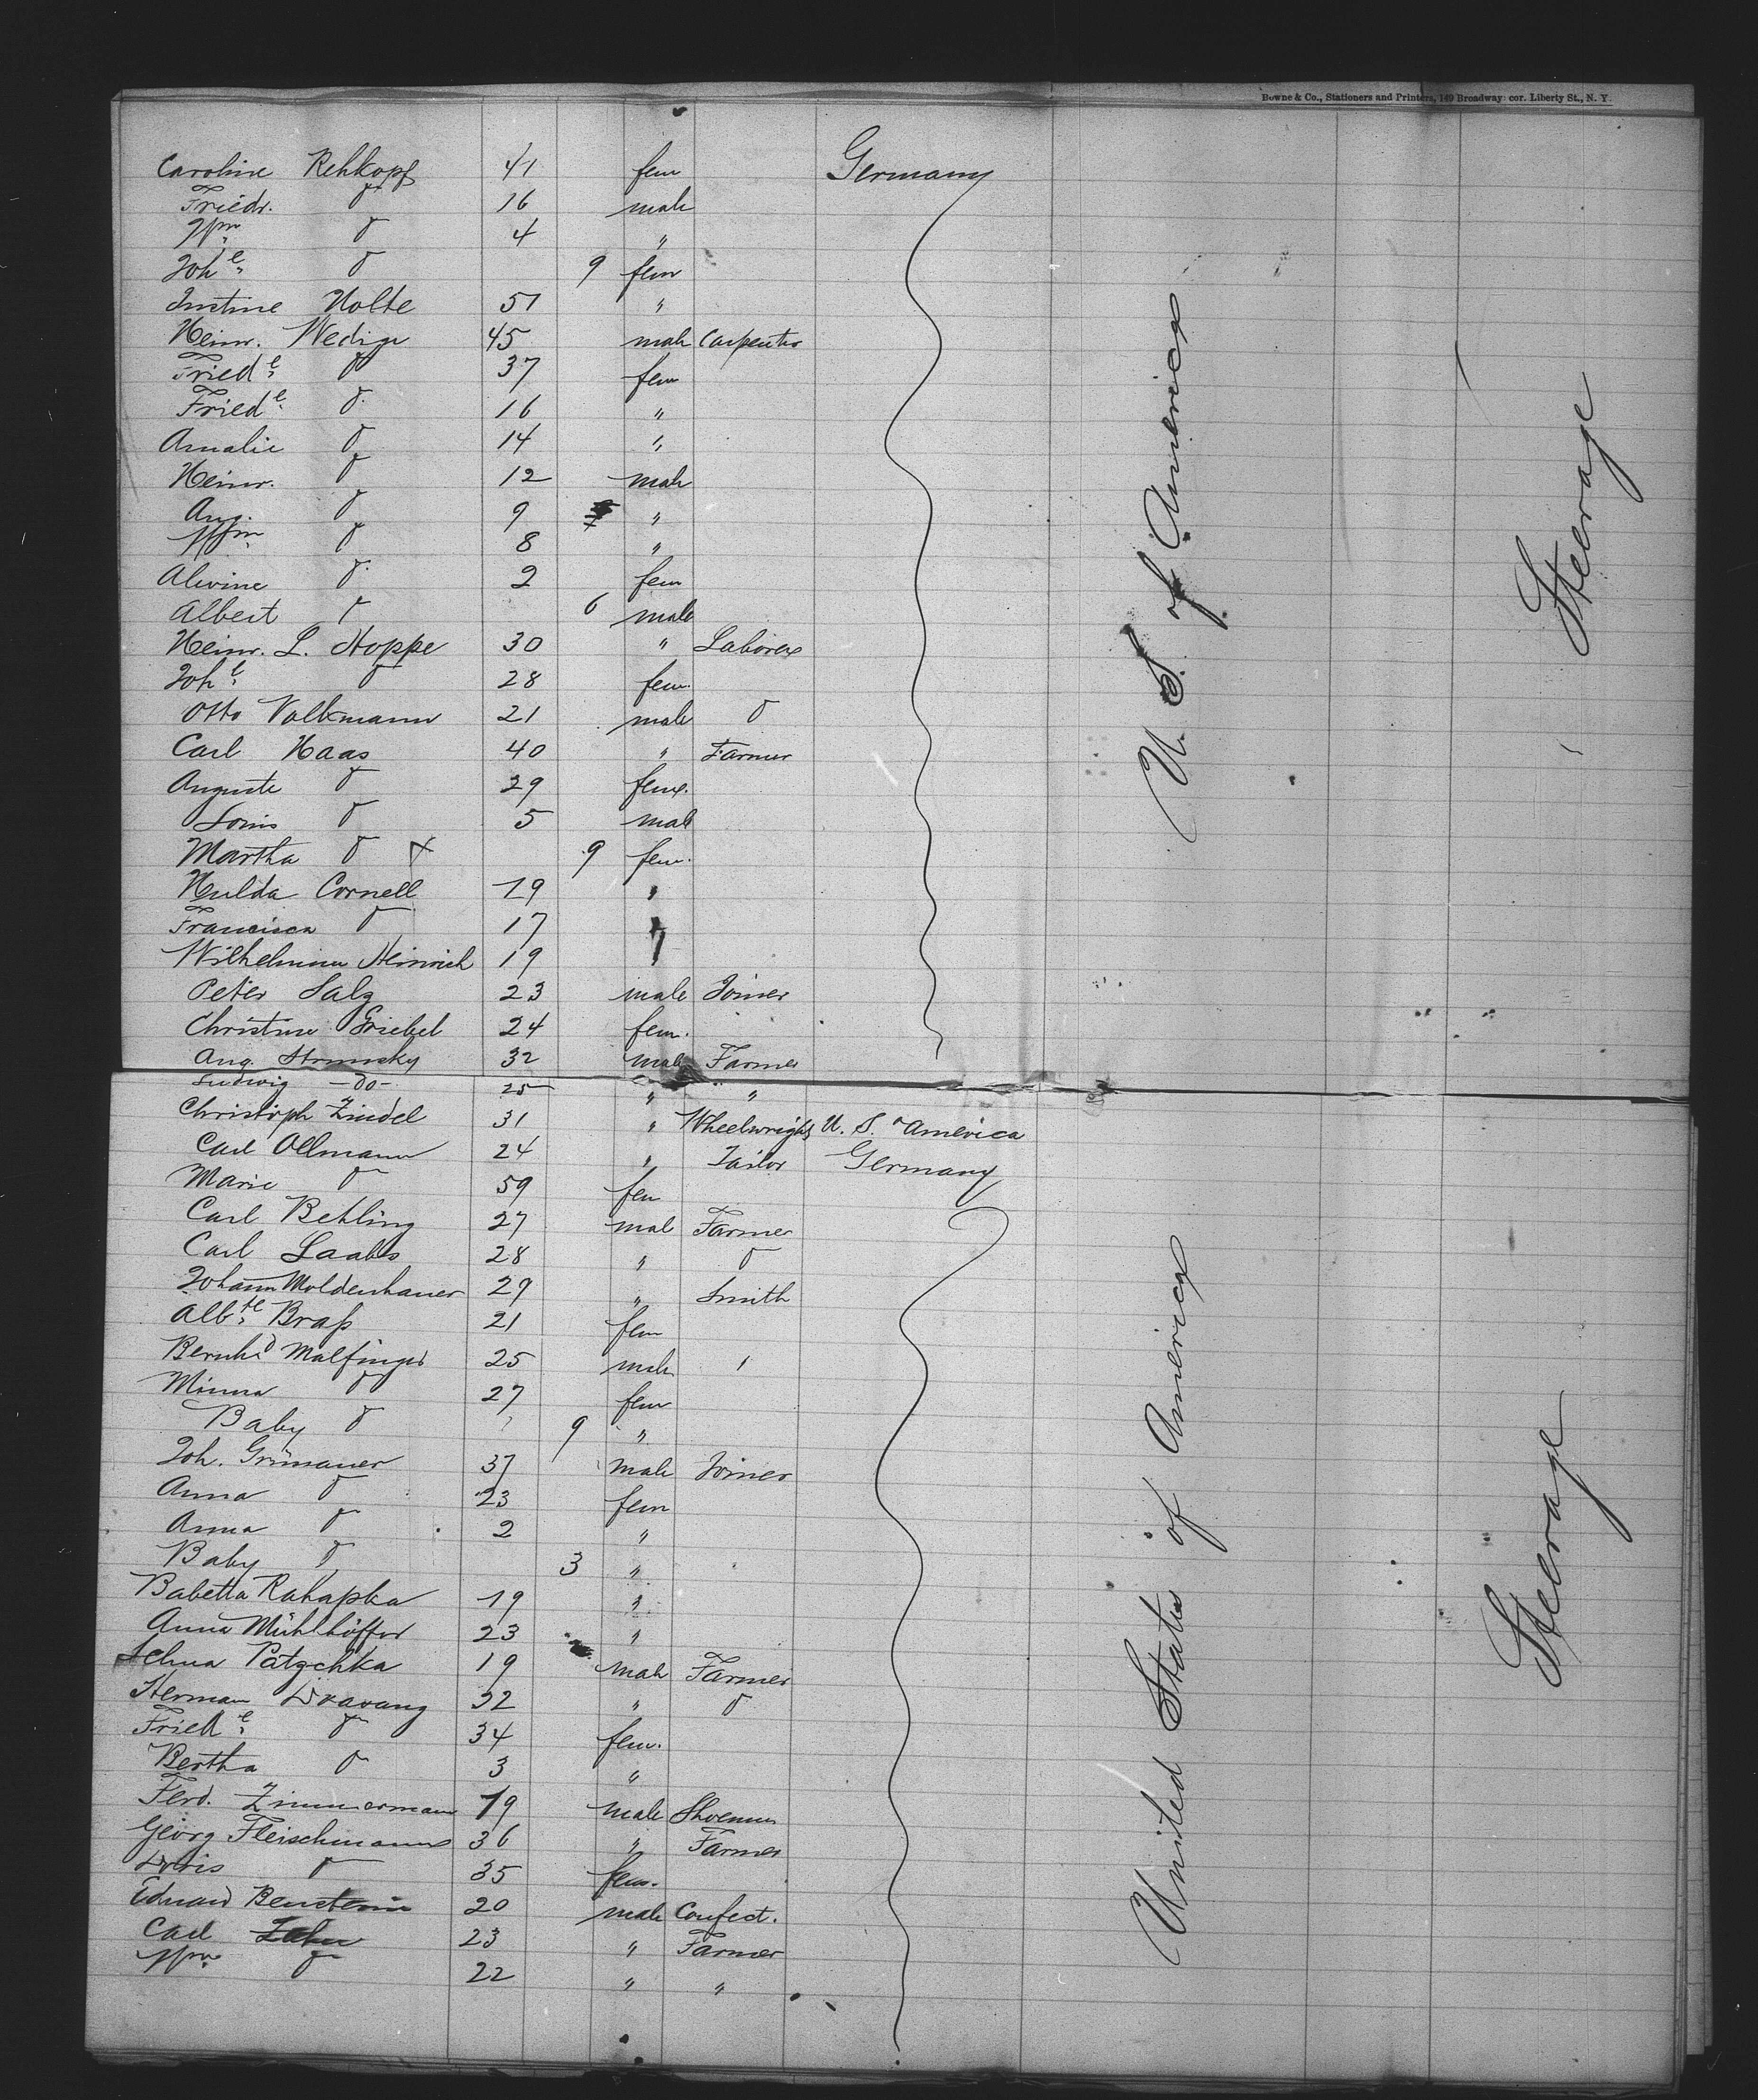 Bowne & Co., Stationers and Printers, 149 Broadway cor. Liberty St., N. Y.
Caroline Rehkopf 41 fem Germany
Friedr. do 16 male
Wm do 4 "
Johe do 9 fem
Justine Nolte 51 "
Heinr. Wedige 45 male Carpenter
Friede do 37 fem
Friede do 16 "
Amalie do 14 "
Heinr. do 12 male
Aug. do 9 "
Wm do 8 "
Alwine do 2 fem
Albert do 6 male
Heinr. L. Hoppe 30 " Laborer
Johe do 28 fem.
Otto Volkmann 21 male do
Carl Haas 40 " Farmer
Auguste do 29 fem.
Louis do 5 male
Martha do X 9 fem.
Hulda Cornell 19 "
Francisca do 17 "
Wilhelmine Heinrich 19 "
Peter Salg 23 male Joiner
Christine Griebel 24 fem.
Aug. 32 male Farmer
Ludwig -do- 25 " "
Christoph Zindel 31 " Wheelwright U. S. America
Carl Ollmann 24 " Tailor Germany
Marie do 59 fem
Carl Behling 27 male Farmer
Carl Laabs 28 " do
Johann Moldenhauer 29 " Smith
Albte Braß 21 fem
Bernhd Malfinger 25 male
Minna do 27 fem
Baby do 9 "
Joh. Grünauer 37 male Joiner
Anna do 23 fem
Anna do 2 "
Baby do 3 "
Babetta Rahapka 19 "
Anna Mühlhöffer 23 "
Selma Patzchka 19 male Farmer
Herman 32 " do
Friede do 34 fem.
Bertha do 3 "
Ferd. Zimmermann 19 male Shoem
Georg Fleischmann 36 " Farmer
Doris do 35 fem.
Eduard 20 male Confect.
Carl 23 " Farmer
Wm do 22 " "
U. S. of America
Steerage
United States of America
Steerage